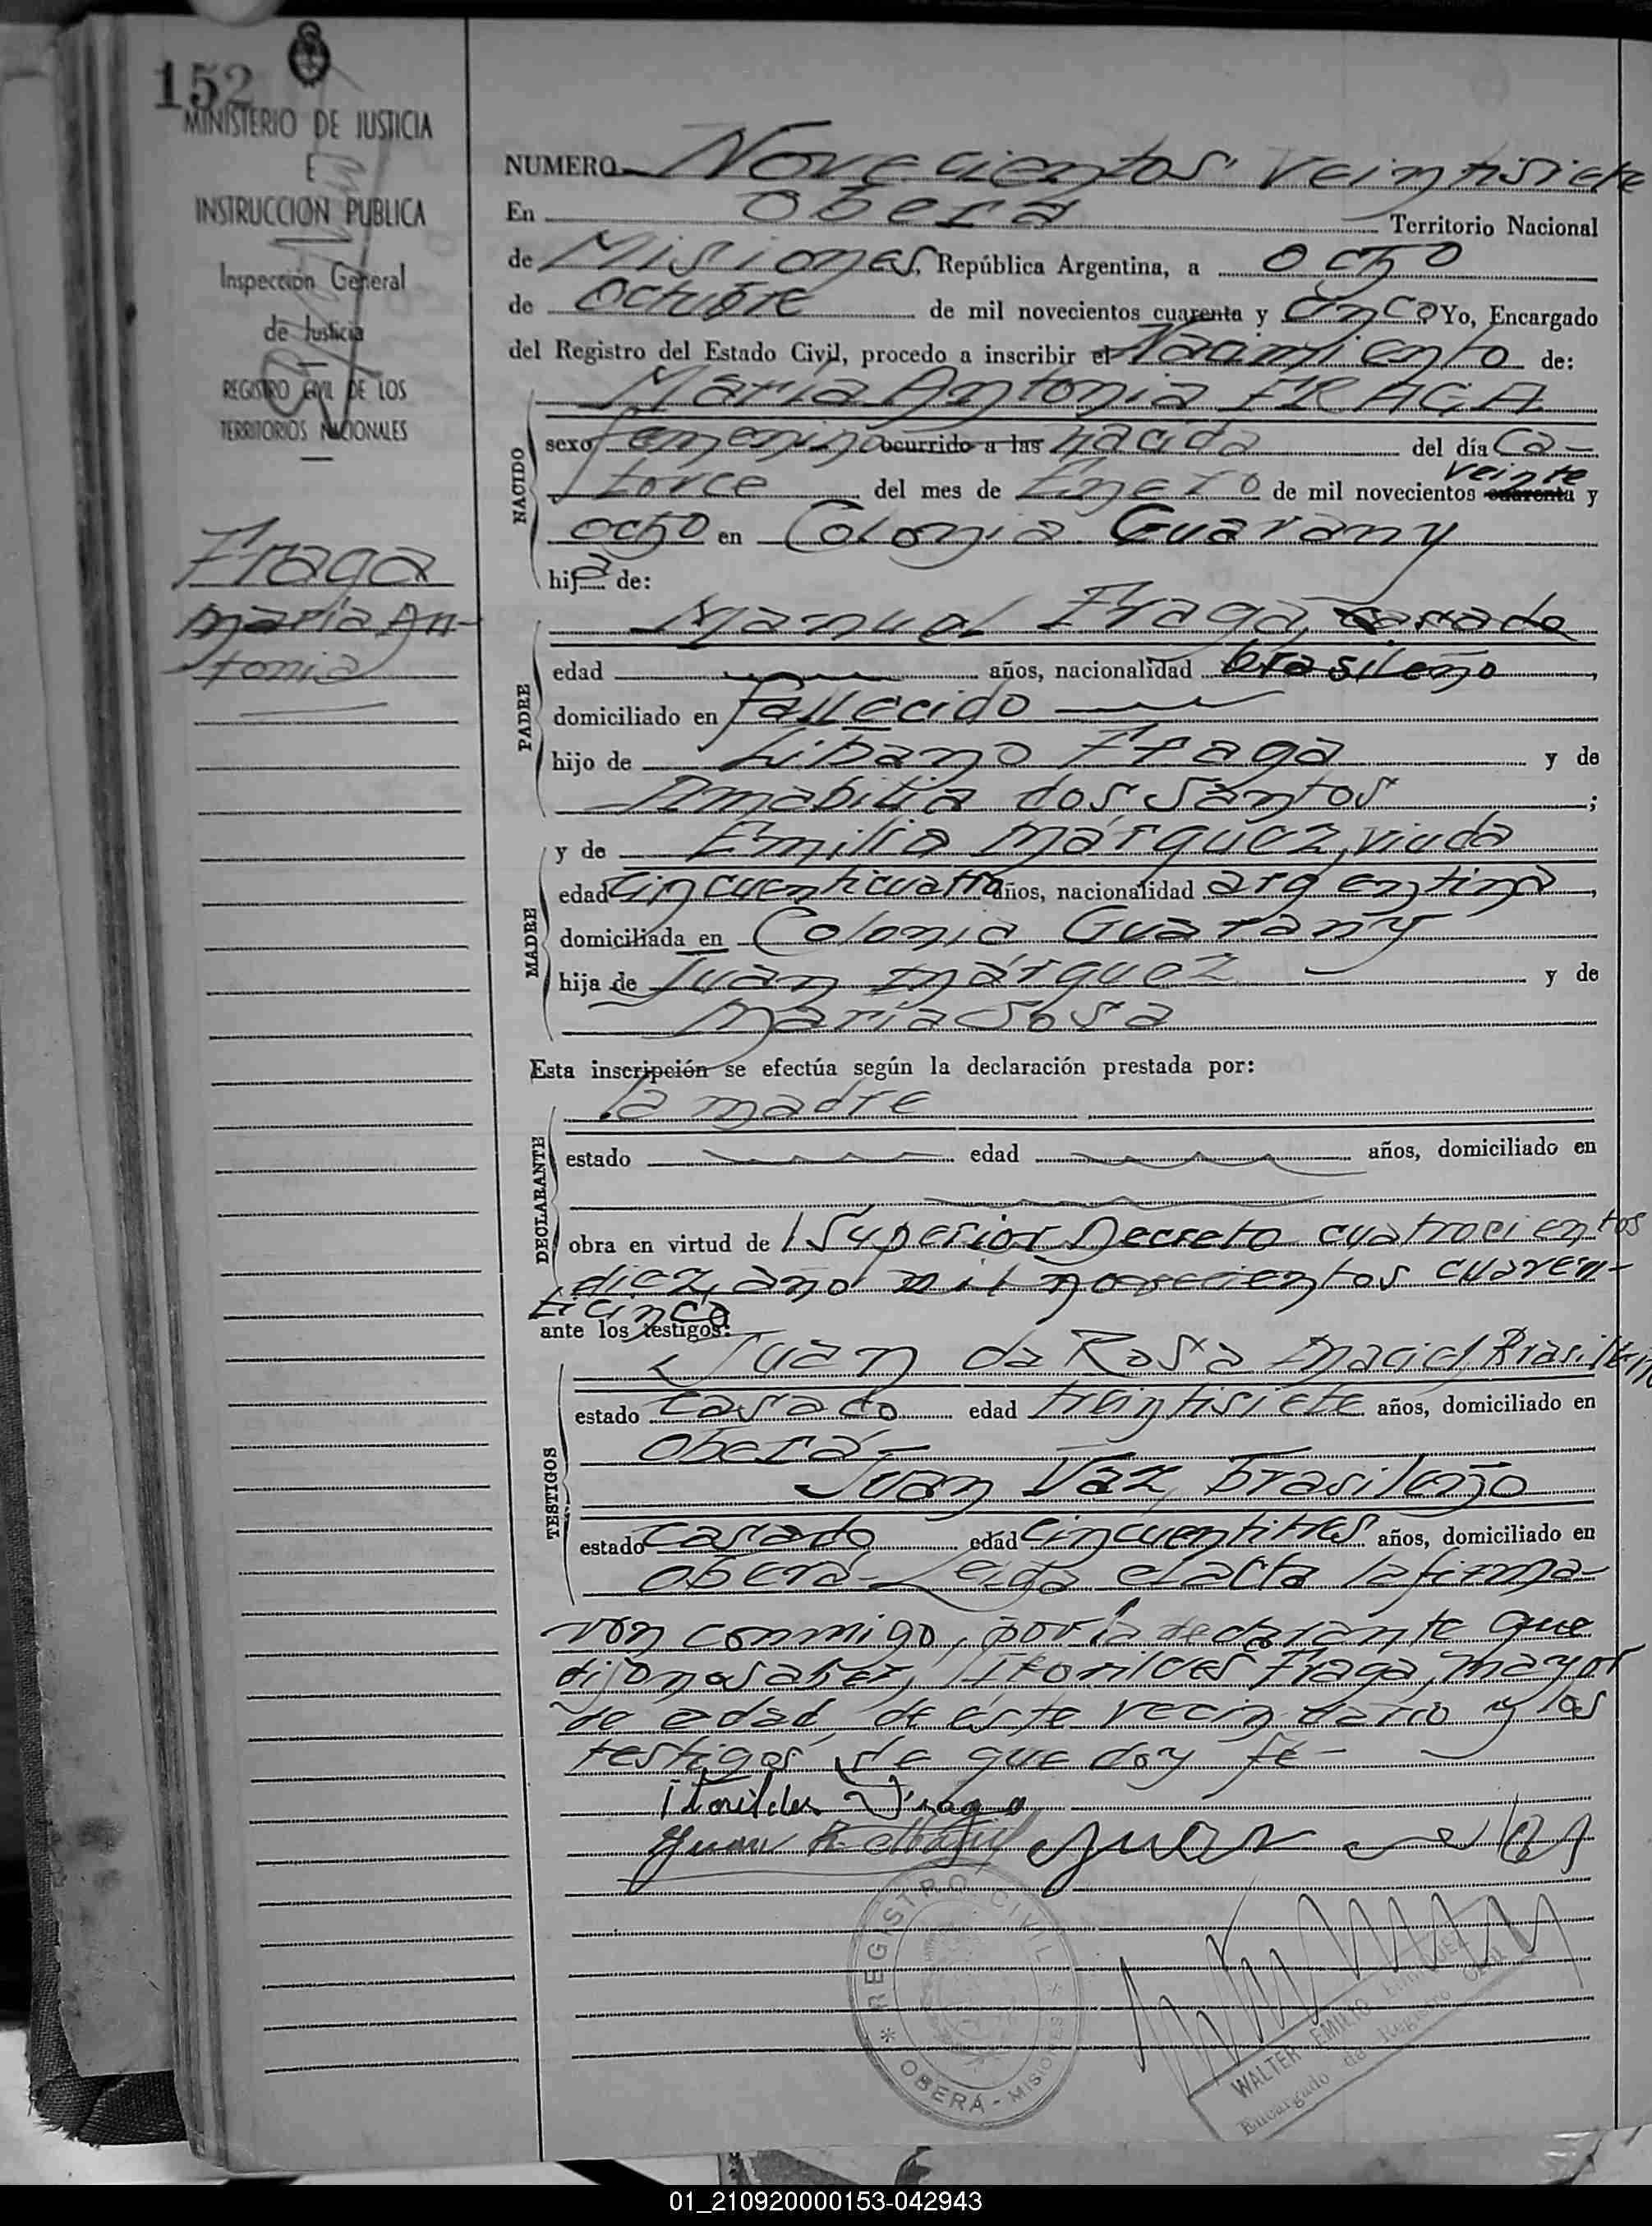 152
MINISTERIO DE JUSTICIA
E
INSTRUCCION PUBLICA
Inspección General
de Justicia
REGISTRO CIVIL DE LOS
TERRITORIOS NACIONALES
Fraga
María An-
tonia
NUMERO Novecientos veintisiete
En Oberá Territorio Nacional
de Misiones, República Argentina, a ocho
de Octubre de mil novecientos cuarenta y cinco Yo, Encargado
del Registro del Estado Civil, procedo a inscribir el Nacimiento de:
María Antonia FRAGA
NACIDO
sexo femenino ocurrido a las nacida del día Ca-
torce del mes de Enero de mil novecientos cuarenta veinte y
ocho en Colonia Guarany
hija de:
PADRE
Manuel Fraga, casado
edad años, nacionalidad brasileño,
domiciliado en fallecido
hijo de Libano Fraga y de
Amabilia dos Santos;
MADRE
y de Emilia Márquez, viuda
edad cincuenticuatro años, nacionalidad argentina,
domiciliada en Colonia Guarany
hija de Juan Márquez y de
María Sosa
Esta inscripción se efectúa según la declaración prestada por:
DECLARANTE
la madre
estado edad años, domiciliado en
obra en virtud de l Superior Decreto cuatrocientos
diez, año mil novecientos cuaren-
ticinco
ante los testigos:
TESTIGOS
Juan da Rosa Maciel, Brasileño
estado casado edad treintisiete años, domiciliado en
Oberá-
Juan Vaz, brasileño
estado casado edad cincuentitres años, domiciliado en
Oberá- Leida el acta la firma-
ron conmigo, por la declarante que
dijo no saber, Itorildes Fraga, mayor
de edad, de éste vecindario y los
testigos, de que doy fé-
Itorildes Fraga
Juan R. Maciel Juan Vaz
REGISTRO CIVIL
OBERÁ - MISIONES
WALTER EMILIO ENRIQUEZ
Encargado de Registro Civil
01_210920000153-042943